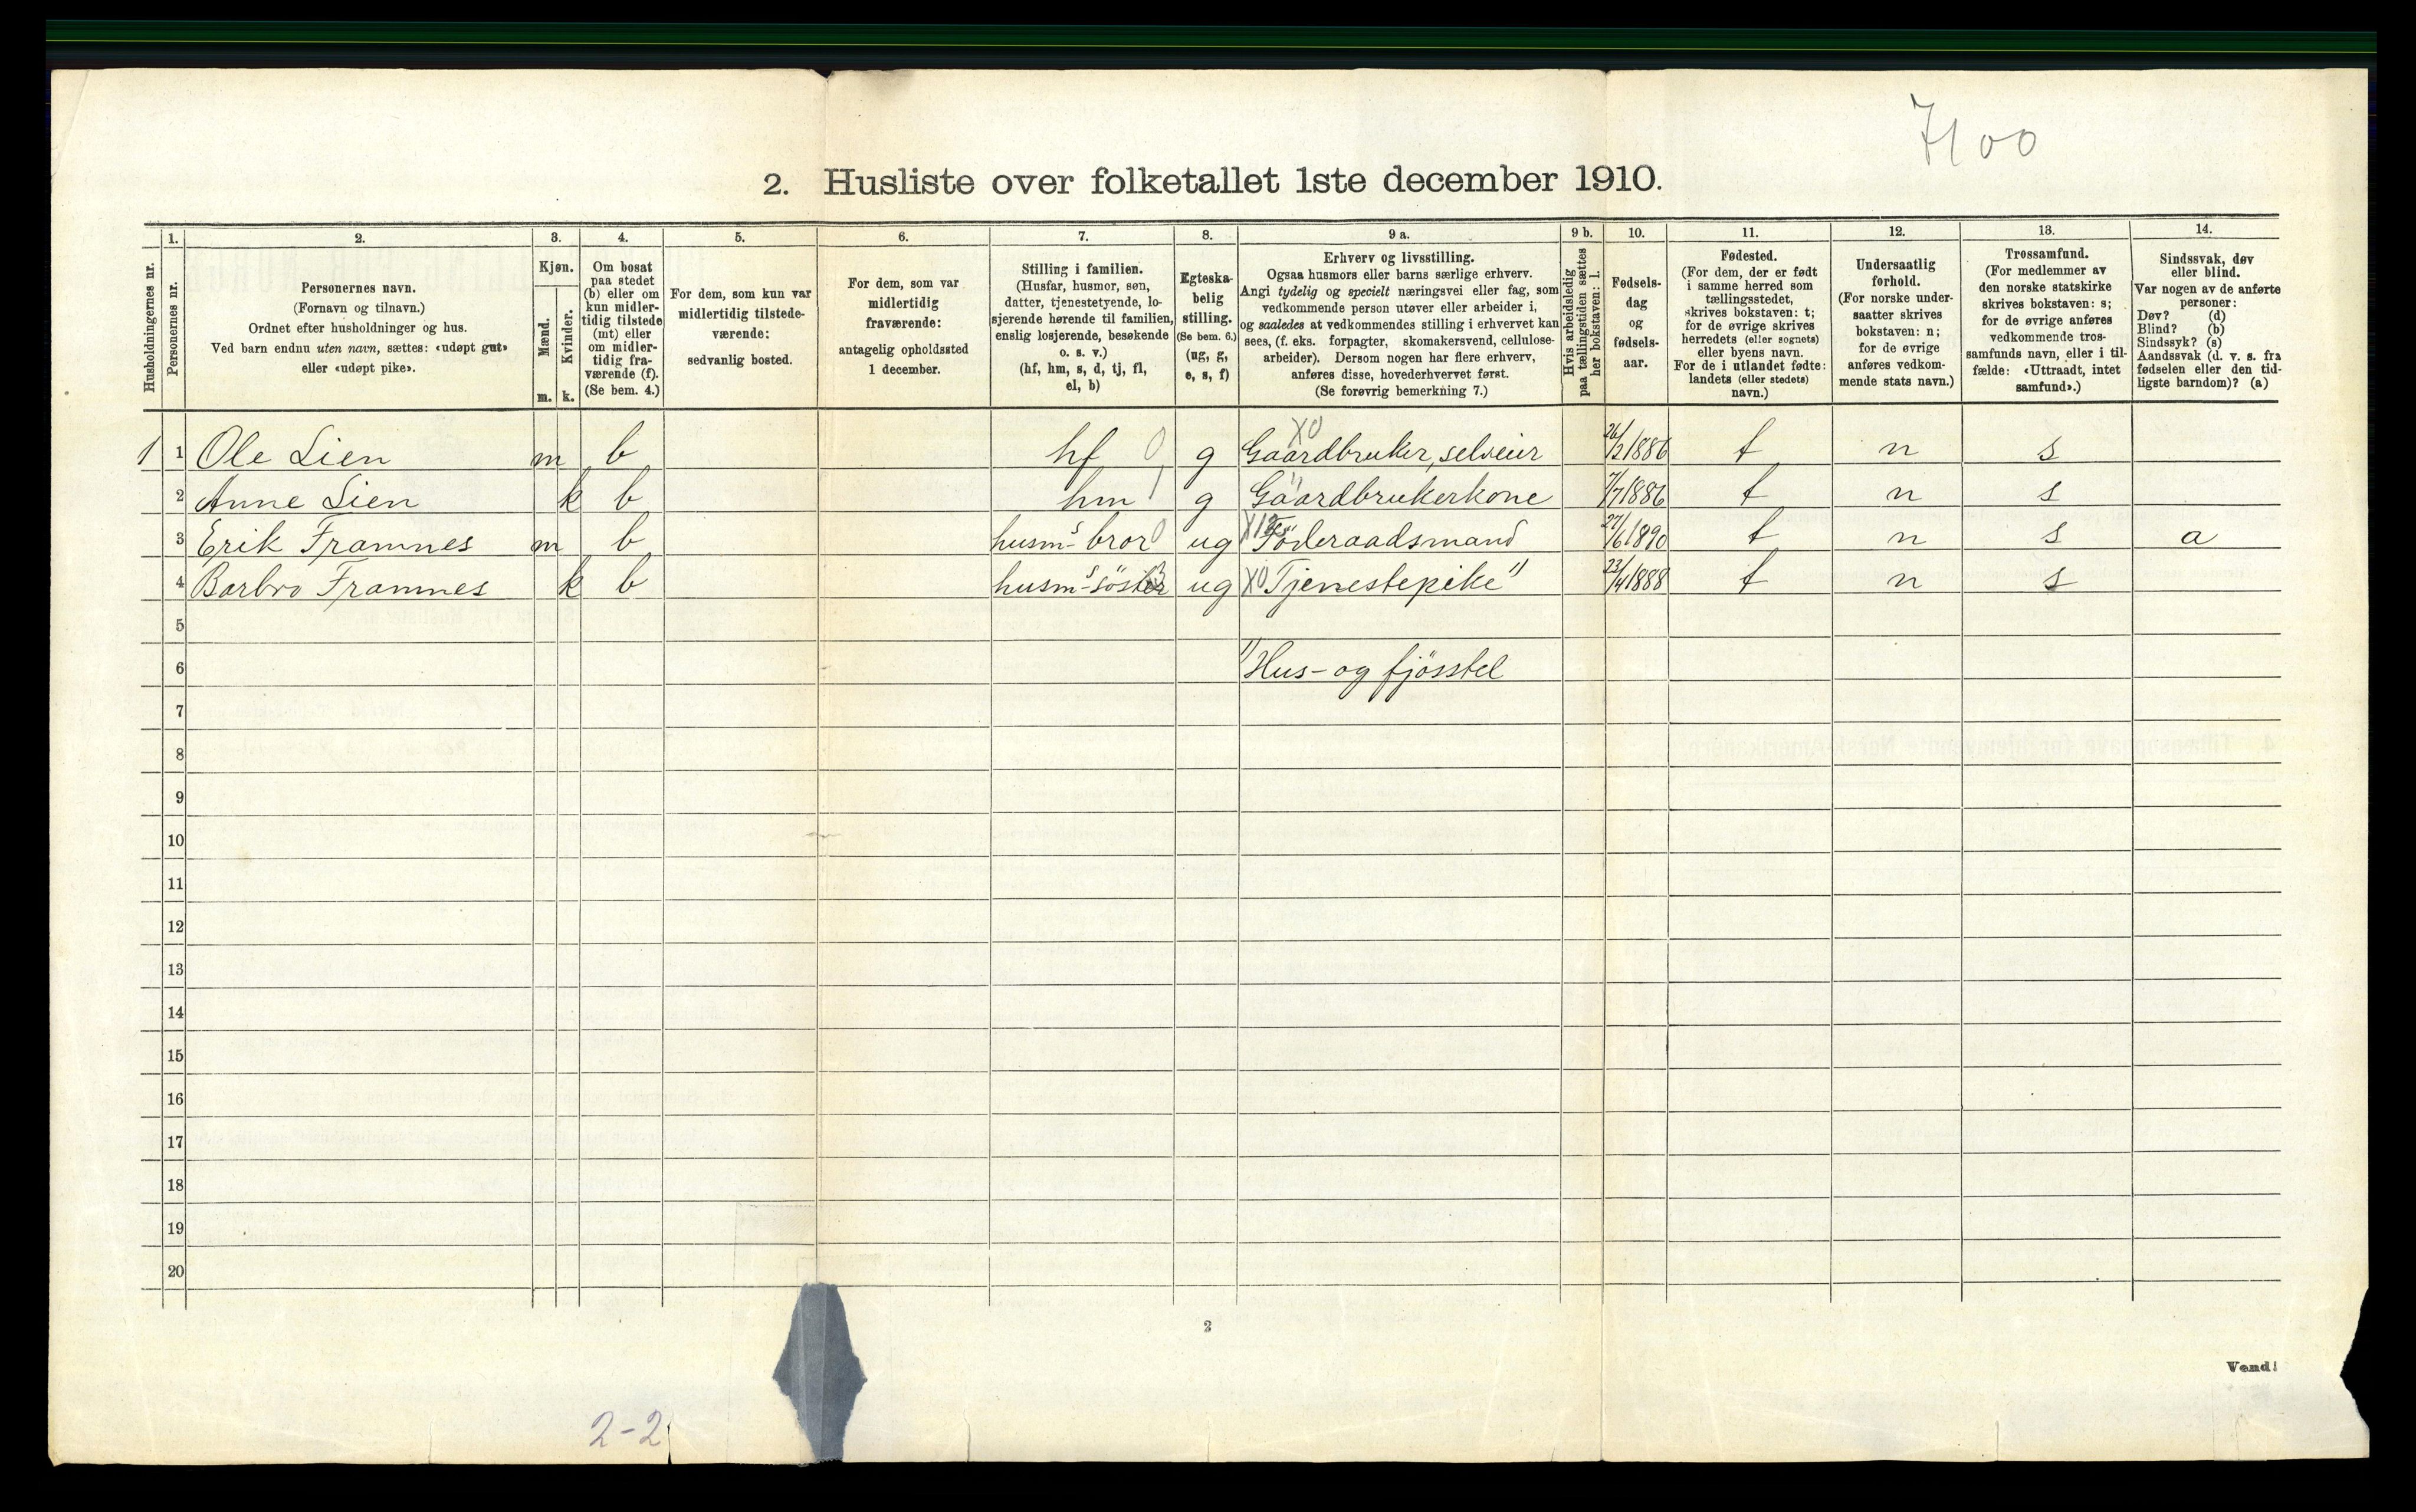 7100
2. Husliste over folketallet 1ste december 1910.
Husholdningernes nr.
1.
Personernes nr.
2.
Personernes navn.
(Fornavn og tilnavn.)
Ordnet efter husholdninger og hus.
Ved barn endnu uten navn, sættes: «udøpt gut»
eller «udøpt pike».
3.
Kjøn.
Mænd.
Kvinder.
m. k.
4.
Om bosat
paa stedet
(b) eller om
kun midler-
tidig tilstede
(mt) eller
om midler-
tidig fra-
værende (f).
(Se bem. 4.)
5.
For dem, som kun var
midlertidig tilstede-
værende:
sedvanlig bosted.
6.
For dem, som var
midlertidig
fraværende:
antagelig opholdssted
1 december.
7.
Stilling i familien.
(Husfar, husmor, søn,
datter, tjenestetyende, lo-
sjerende hørende til familien,
enslig losjerende, besøkende
o. s. v.)
(hf, hm, s, d, tj, fl,
el, b)
8.
Egteska-
belig
stilling.
(Se bem. 6.)
(ug, g,
e, s, f)
9 a.
Erhverv og livsstilling.
Ogsaa husmors eller barns særlige erhverv.
Angi tydelig og specielt næringsvei eller fag, som
vedkommende person utøver eller arbeider i,
og saaledes at vedkommendes stilling i erhvervet kan
sees, (f. eks. forpagter, skomakersvend, cellulose-
arbeider). Dersom nogen har flere erhverv,
anføres disse, hovederhvervet først.
(Se forøvrig bemerkning 7.)
9 b.
Hvis arbeidsledig
paa tællingstiden sættes
her bokstaven: l.
10.
Fødsels-
dag
og
fødsels-
aar.
11.
Fødested.
(For dem, der er født
i samme herred som
tællingsstedet,
skrives bokstaven: t;
for de øvrige skrives
herredets (eller sognets)
eller byens navn.
For de i utlandet fødte:
landets (eller stedets)
navn.)
12.
Undersaatlig
forhold.
(For norske under-
saatter skrives
bokstaven: n;
for de øvrige
anføres vedkom-
mende stats navn.)
13.
Trossamfund.
(For medlemmer av
den norske statskirke
skrives bokstaven: s;
for de øvrige anføres
vedkommende tros-
samfunds navn, eller i til-
fælde: «Uttraadt, intet
samfund».)
14.
Sindssvak, døv
eller blind.
Var nogen av de anførte
personer:
Døv? (d)
Blind? (b)
Sindssyk? (s)
Aandssvak (d. v. s. fra
fødselen eller den tid-
ligste barndom)? (a)
1 1 Ole Lien m b hf 0 g X0 Gaardbruker, selveier 26/2 1886 t n s
2 Anne Lien k b hm 1 g Gaardbrukerkone 7/7 1886 t n s
3 Erik Framnes m b husm.s bror 0 ug X12 Föderaadsmand 27/6 1890 t n s a
4 Barbro Framnes k b husm.s söster ug X0 Tjenestepike 1) 23/4 1888 t n s
5
6 1) Hus- og fjösstel
7
8
9
10
11
12
13
14
15
16
17
18
19
20
2
Vend!
2-2